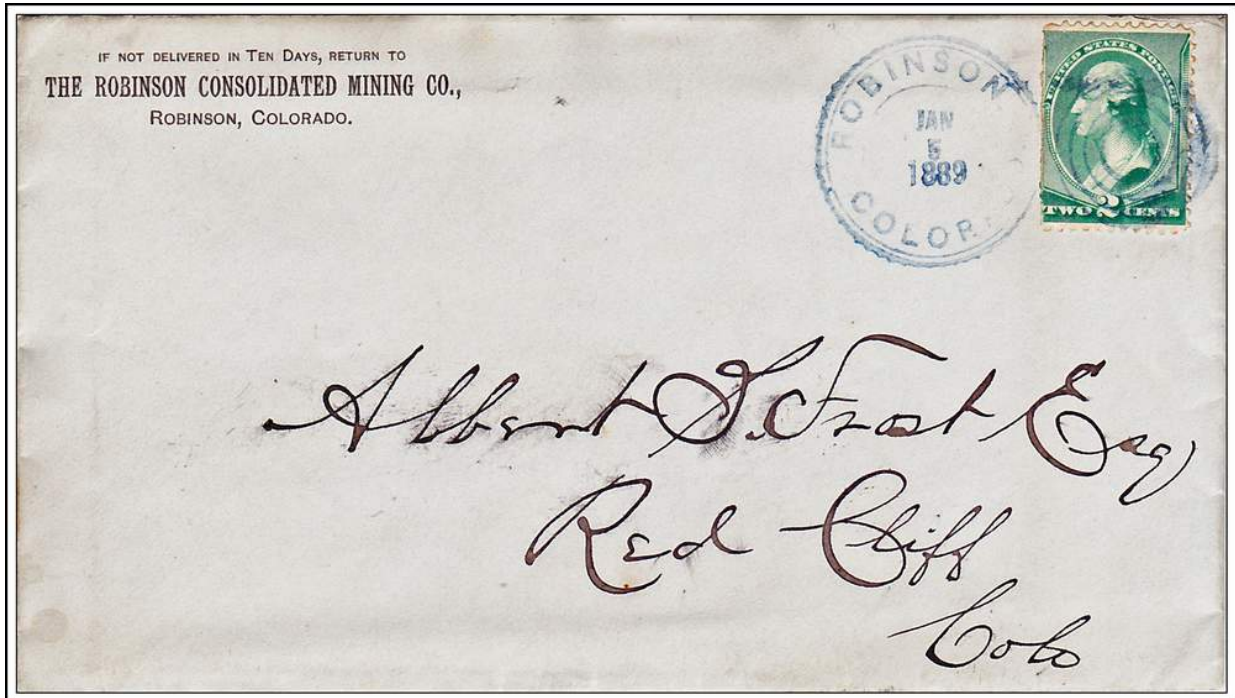 IF NOT DELIVERED IN TEN DAYS, RETURN TO
THE ROBINSON CONSOLIDATED MINING CO.,
ROBINSON, COLORADO.
ROBINSON
JAN
5
1889
COLOR
UNITED STATES POSTAGE
TWO 2 CENTS
Albert S. Frost Esq
Red Cliff
Colo